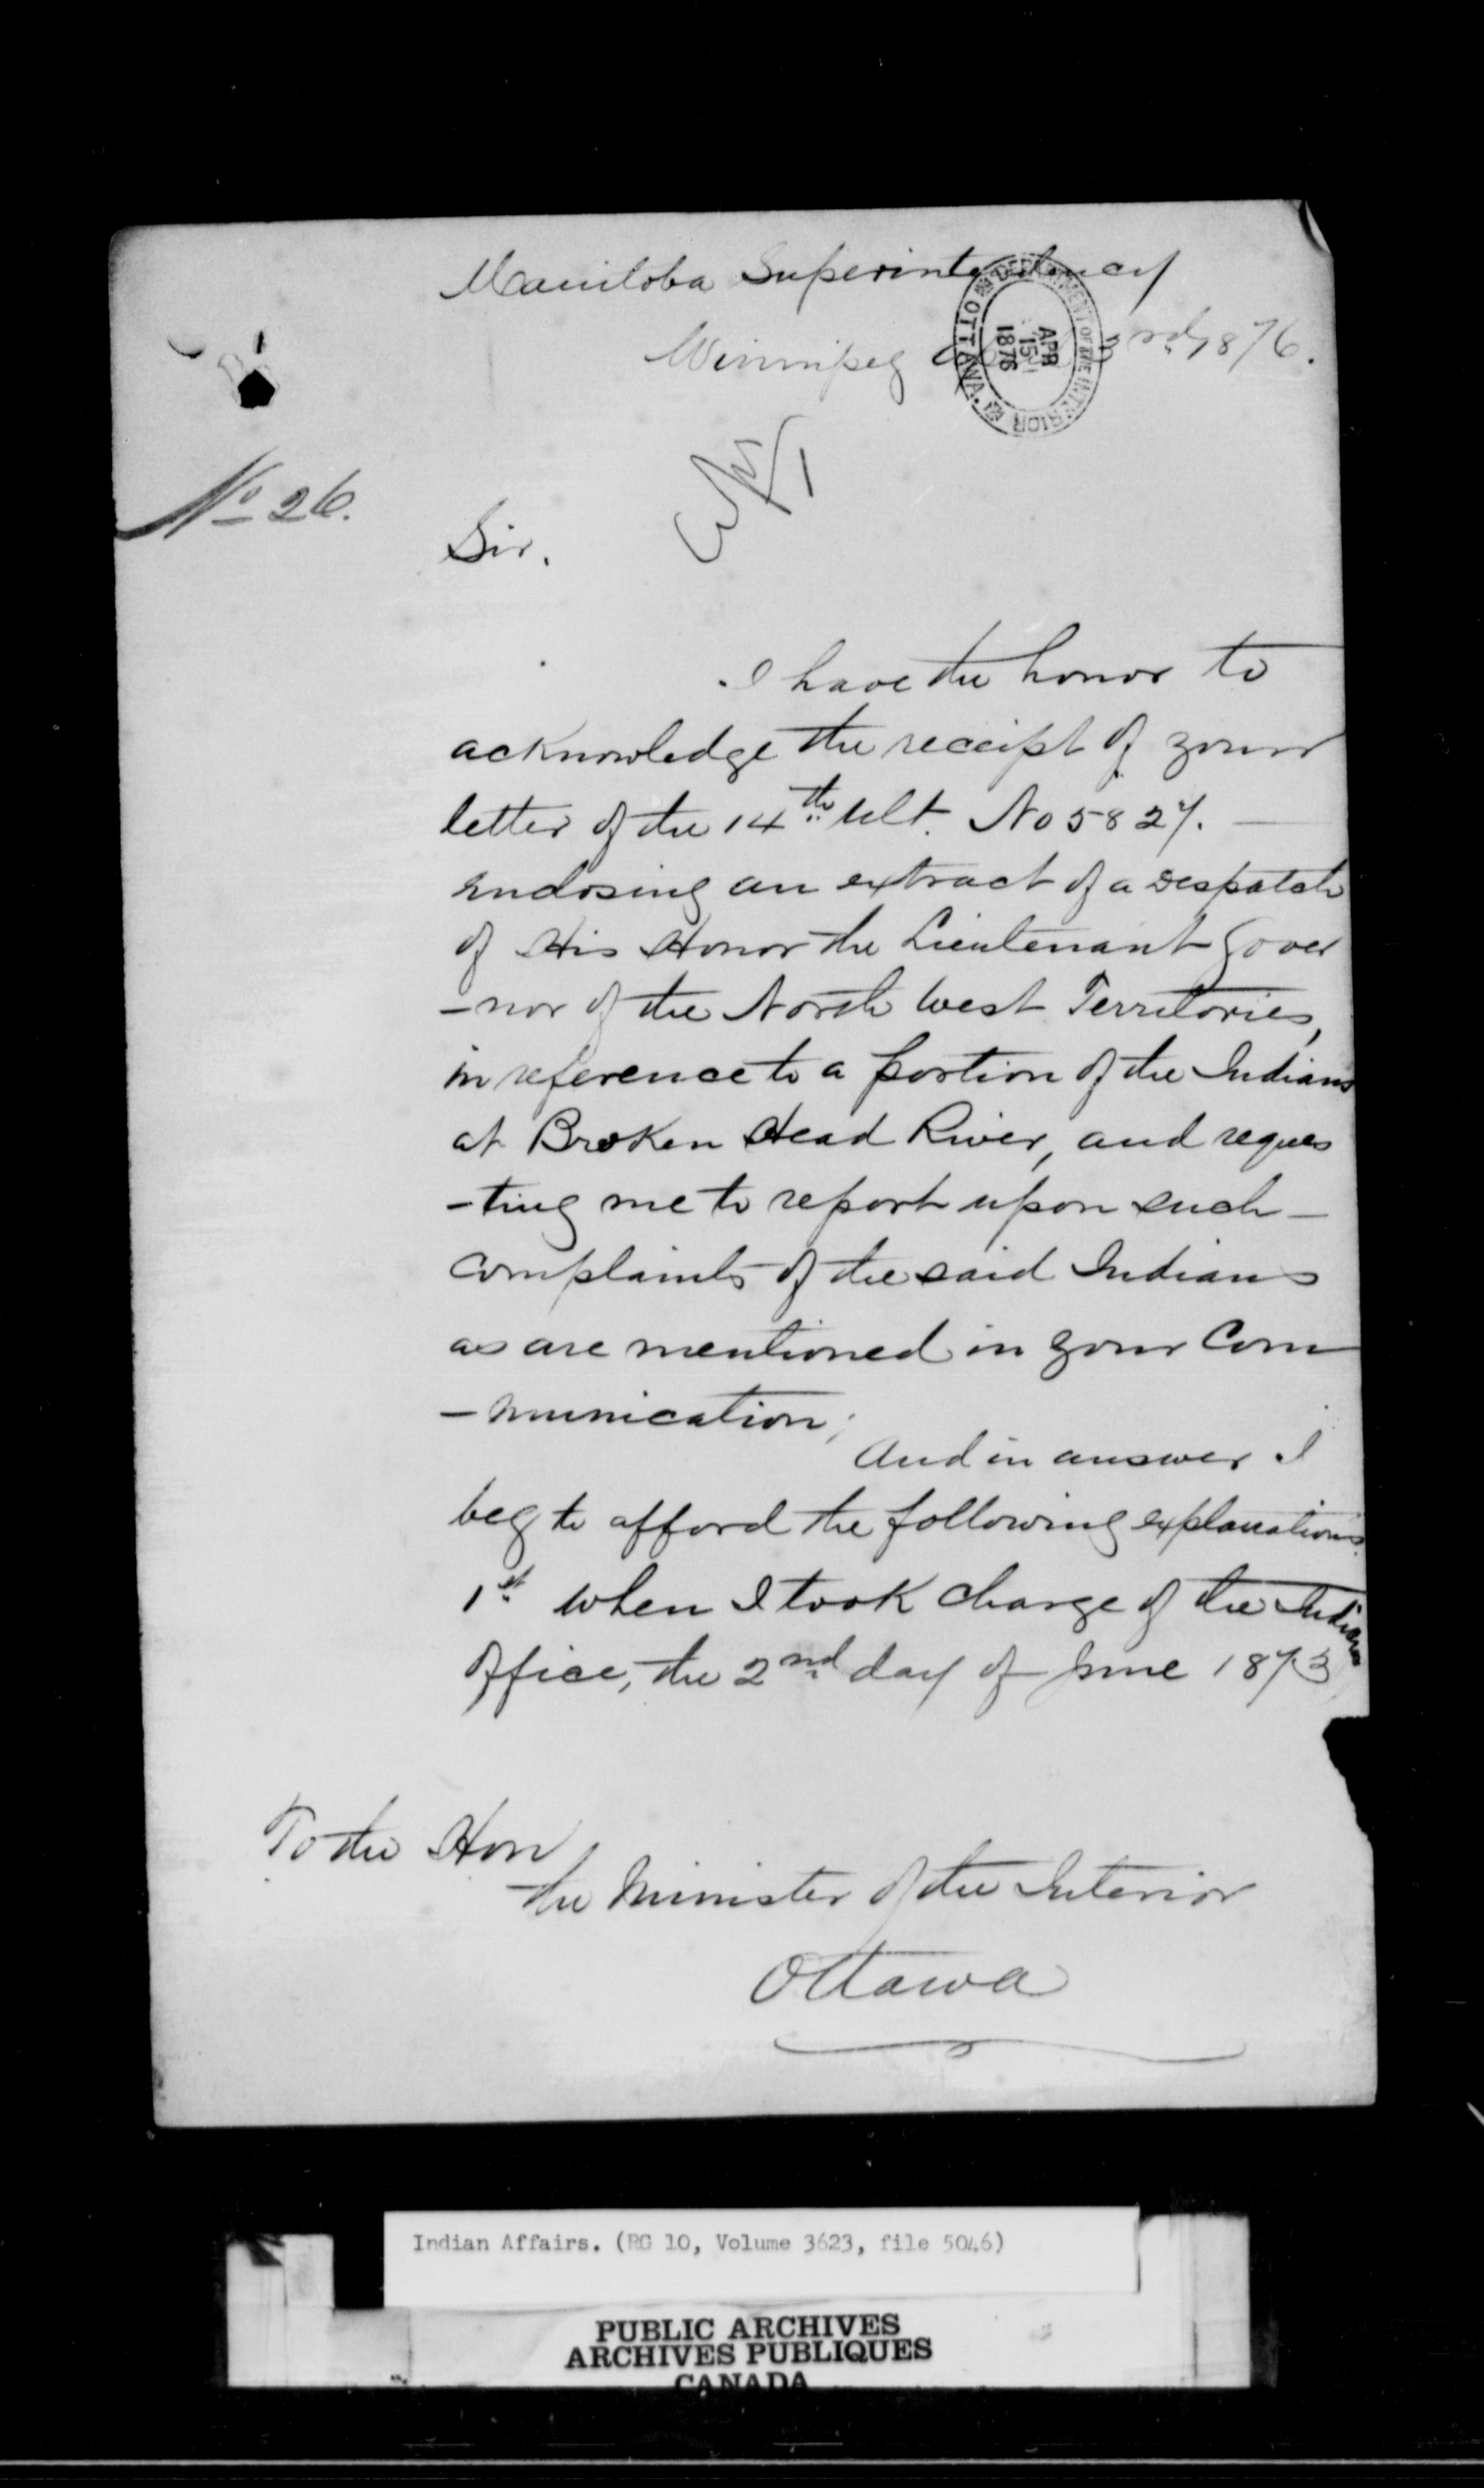 Manitoba Superintendency
Winnipeg 3rd 1876.
DEPARTMENT OF THE INTERIOR OTTAWA
APR
15
1876
No 26.
Sir.
I have the honor to
acknowledge the receipt of your
letter of the 14th ult. No 5827. —
enclosing an extract of a Despatch
of His Honor the Lieutenant Gover
-nor of the North West Territories,
in reference to a portion of the Indians
at Broken Head River, and reques
-ting me to report upon such —
complaints of the said Indians
as are mentioned in your Com
-munication;
And in answer I
beg to afford the following explanations.
1st when I took charge of the Indian
office, the 2nd day of June 1873
To the Hon
the Minister of the Interior
Ottawa
Indian Affairs. (RG 10, Volume 3623, file 5046)
PUBLIC ARCHIVES
ARCHIVES PUBLIQUES
CANADA